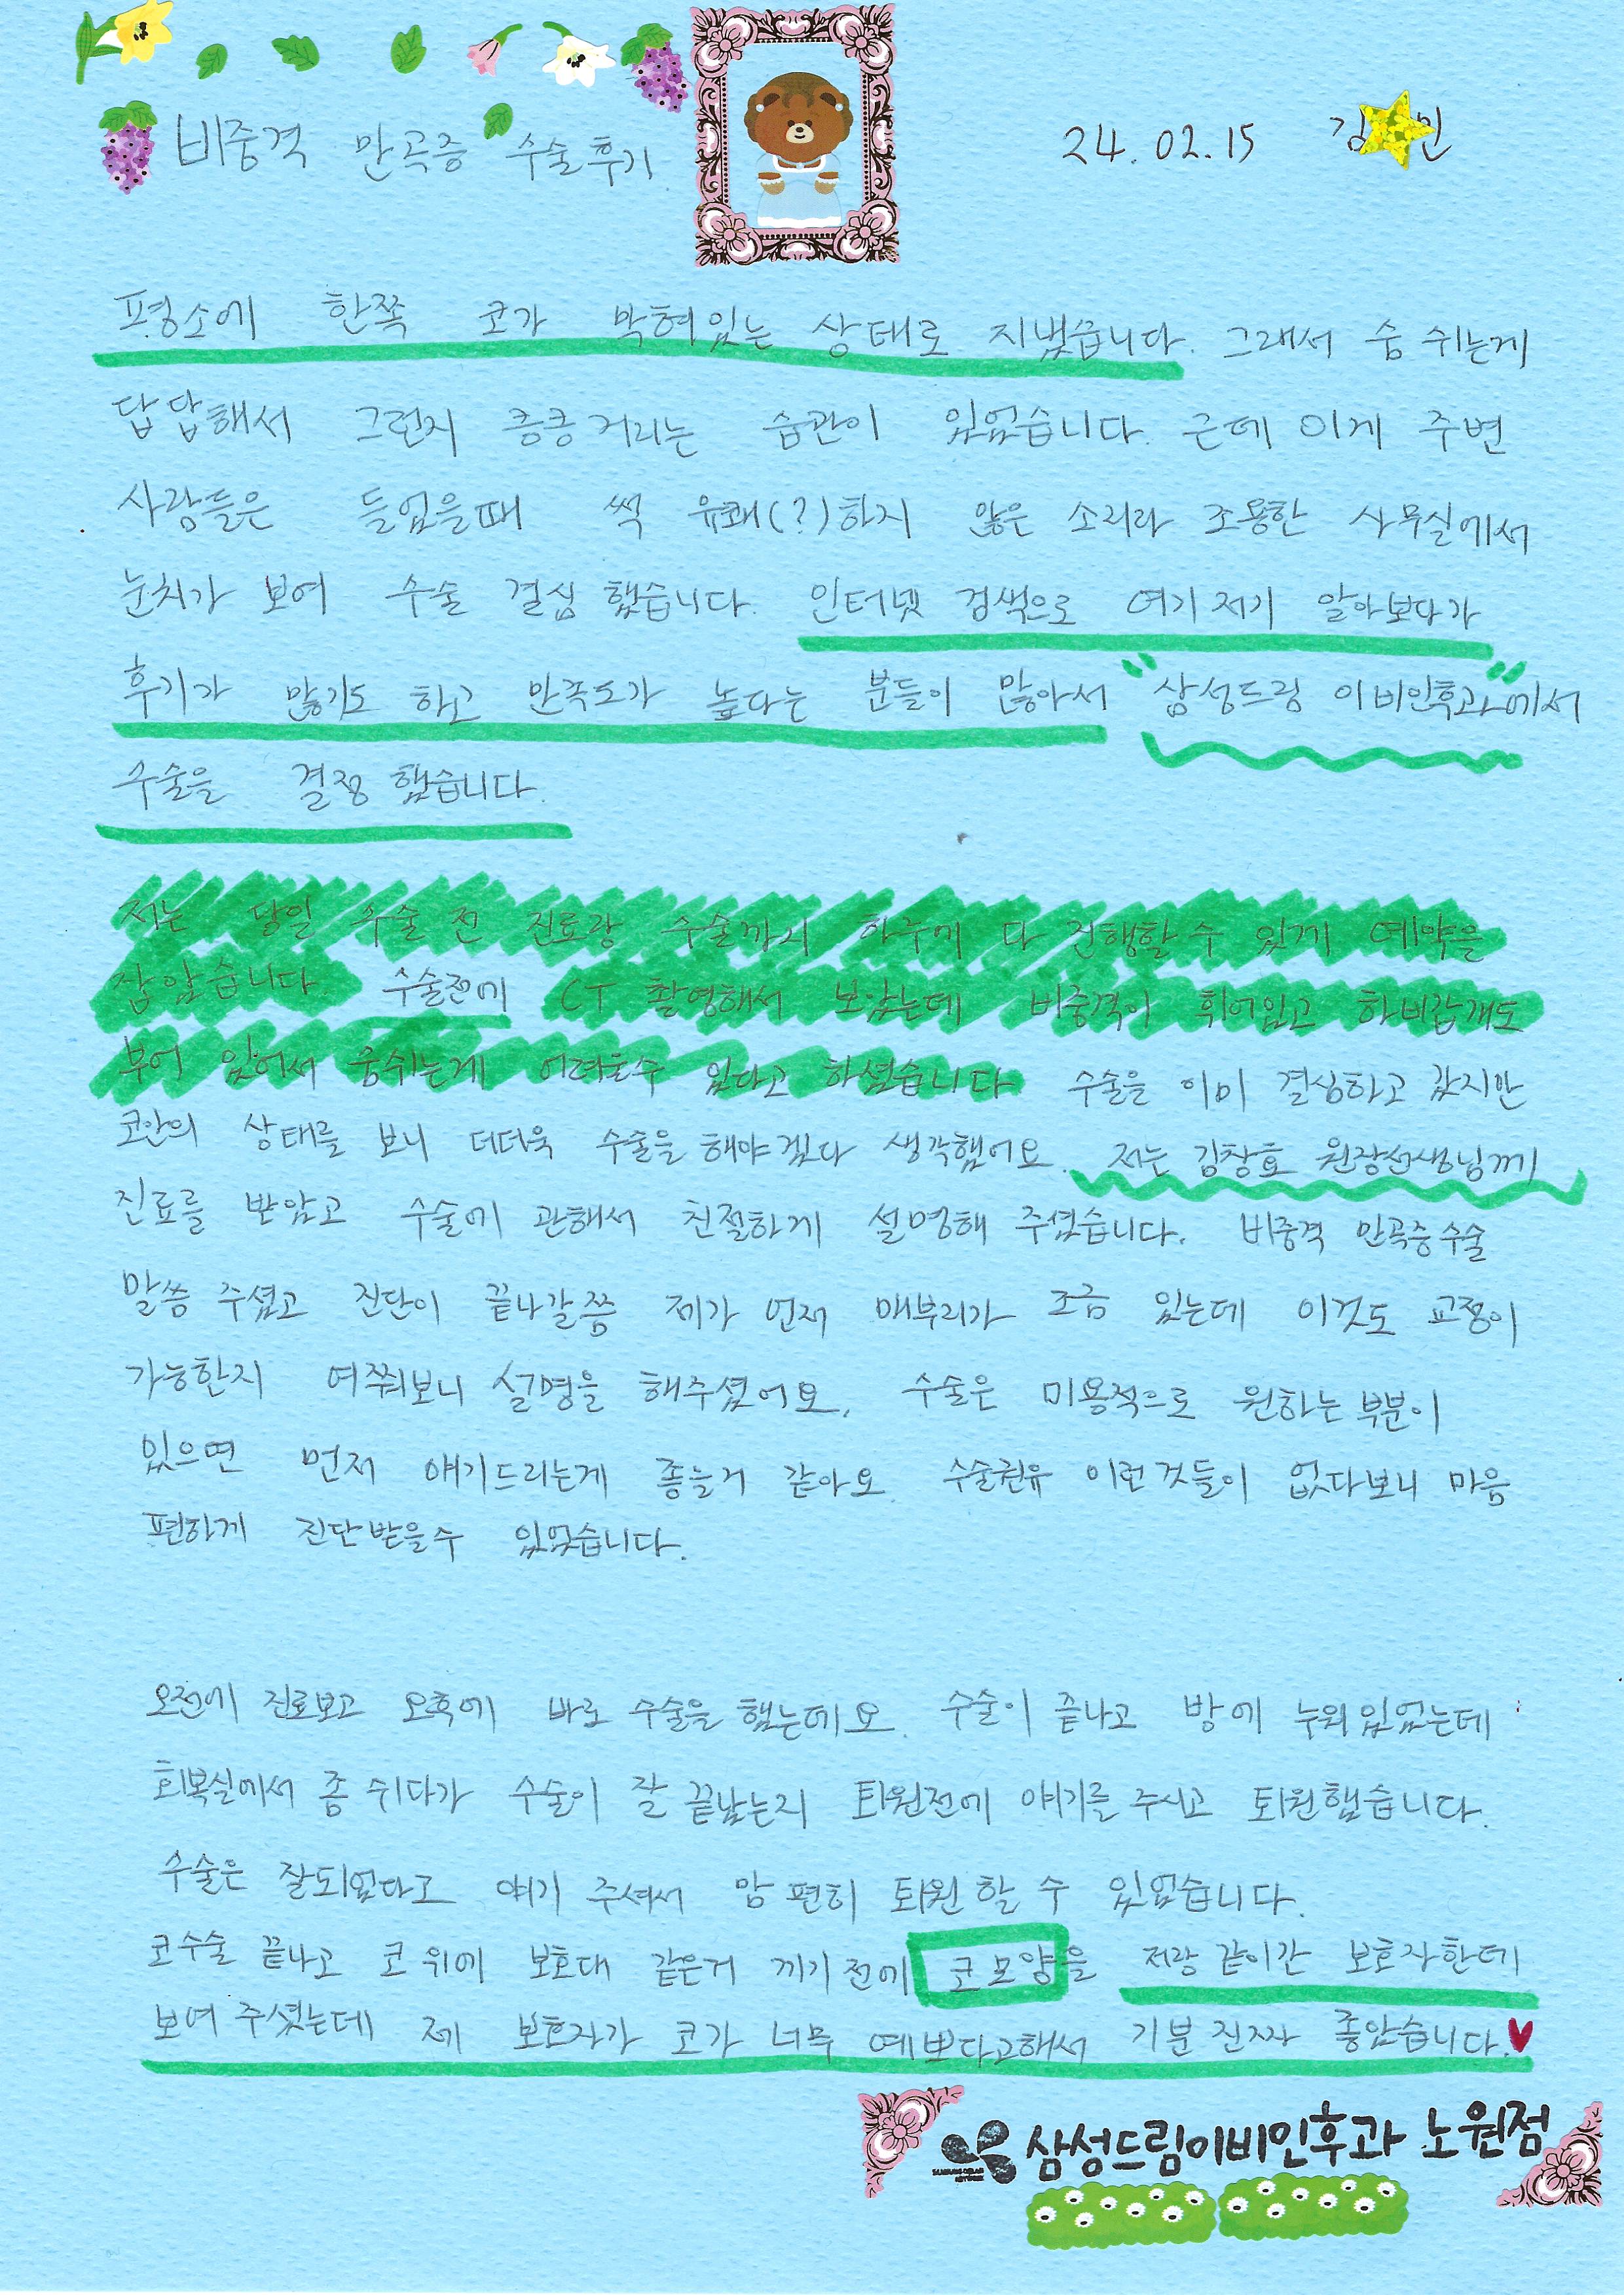 비중격 만곡증 수술후기
24.02.15 김 민
평소에 한쪽 코가 막혀있는 상태로 지냈습니다. 그래서 숨 쉬는게
답답해서 그런지 킁킁거리는 습관이 있었습니다. 근데 이게 주변
사람들은 들었을때 썩 유쾌(?)하지 않은 소리라 조용한 사무실에서
눈치가 보여 수술 결심 했습니다. 인터넷 검색으로 여기저기 알아보다가
후기가 많기도 하고 만족도가 높다는 분들이 많아서 "삼성드림 이비인후과"에서
수술을 결정 했습니다.
저는 당일 수술 전 진료랑 수술까지 하루에 다 진행할 수 있게 예약을
잡았습니다. 수술전에 CT 촬영해서 보았는데 비중격이 휘어있고 하비갑개도
부어 있어서 숨쉬는게 어려울수 있다고 하셨습니다 수술을 이미 결심하고 갔지만
코안의 상태를 보니 더더욱 수술을 해야겠다 생각했어요. 저는 김창효 원장선생님께
진료를 받았고 수술에 관해서 친절하게 설명해 주셨습니다. 비중격 만곡증수술
말씀 주셨고 진단이 끝나갈쯤 제가 먼저 매부리가 조금 있는데 이것도 교정이
가능한지 여쭤보니 설명을 해주셨어요. 수술은 미용적으로 원하는 부분이
있으면 먼저 얘기드리는게 좋을거 같아요. 수술권유 이런것들이 없다보니 마음
편하게 진단받을수 있었습니다.
오전에 진료보고 오후에 바로 수술을 했는데요. 수술이 끝나고 방에 누워있었는데
회복실에서 좀 쉬다가 수술이 잘 끝났는지 퇴원전에 얘기를 주시고 퇴원했습니다.
수술은 잘되었다고 얘기 주셔서 맘 편히 퇴원 할 수 있었습니다.
코수술 끝나고 코 위에 보호대 같은거 끼기 전에 코 모양을 저랑 같이간 보호자한테
보여 주셨는데 제 보호자가 코가 너무 예쁘다고해서 기분 진짜 좋았습니다.
삼성드림이비인후과 노원점